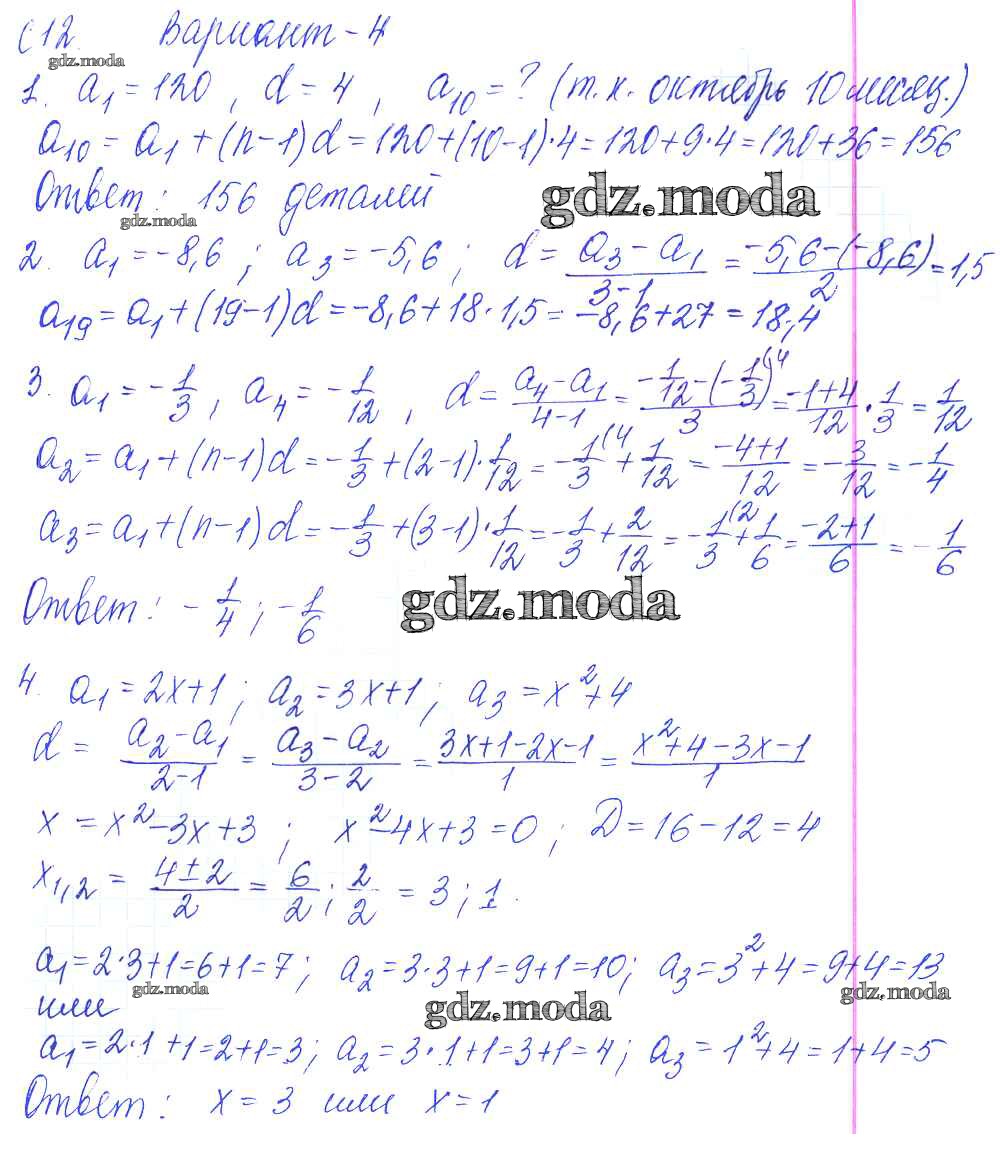 С12. Вариант-4
gdz.moda
1. a₁ = 120, d = 4, a₁₀ = ? (т.к. октябрь 10 месяц.)
a₁₀ = a₁ + (n-1)d = 120+(10-1)·4 = 120+9·4 = 120+36 = 156
Ответ: 156 деталей
gdz.moda
gdz.moda
2. a₁ = -8,6; a₃ = -5,6; d = (a₃ - a₁)/(3-1) = (-5,6-(-8,6))/2 = 1,5
a₁₉ = a₁ + (19-1)d = -8,6+18·1,5 = -8,6+27 = 18,4
3. a₁ = -1/3, a₄ = -1/12, d = (a₄-a₁)/(4-1) = (-1/12-(-1/3)⁽⁴)/3 = (-1+4)/12 · 1/3 = 1/12
a₂ = a₁ + (n-1)d = -1/3 + (2-1)·1/12 = -1/3⁽⁴ + 1/12 = (-4+1)/12 = -3/12 = -1/4
a₃ = a₁ + (n-1)d = -1/3 + (3-1)·1/12 = -1/3 + 2/12 = -1/3⁽² + 1/6 = (-2+1)/6 = -1/6
Ответ: -1/4; -1/6
gdz.moda
4. a₁ = 2x+1; a₂ = 3x+1; a₃ = x²+4
d = (a₂-a₁)/(2-1) = (a₃-a₂)/(3-2) = (3x+1-2x-1)/1 = (x²+4-3x-1)/1
x = x²-3x+3; x²-4x+3=0; D=16-12=4
x₁,₂ = (4±2)/2 = 6/2; 2/2 = 3; 1.
a₁=2·3+1=6+1=7; a₂=3·3+1=9+1=10; a₃=3²+4=9+4=13
или
gdz.moda
gdz.moda
gdz.moda
a₁=2·1+1=2+1=3; a₂=3·1+1=3+1=4; a₃=1²+4=1+4=5
Ответ: x=3 или x=1